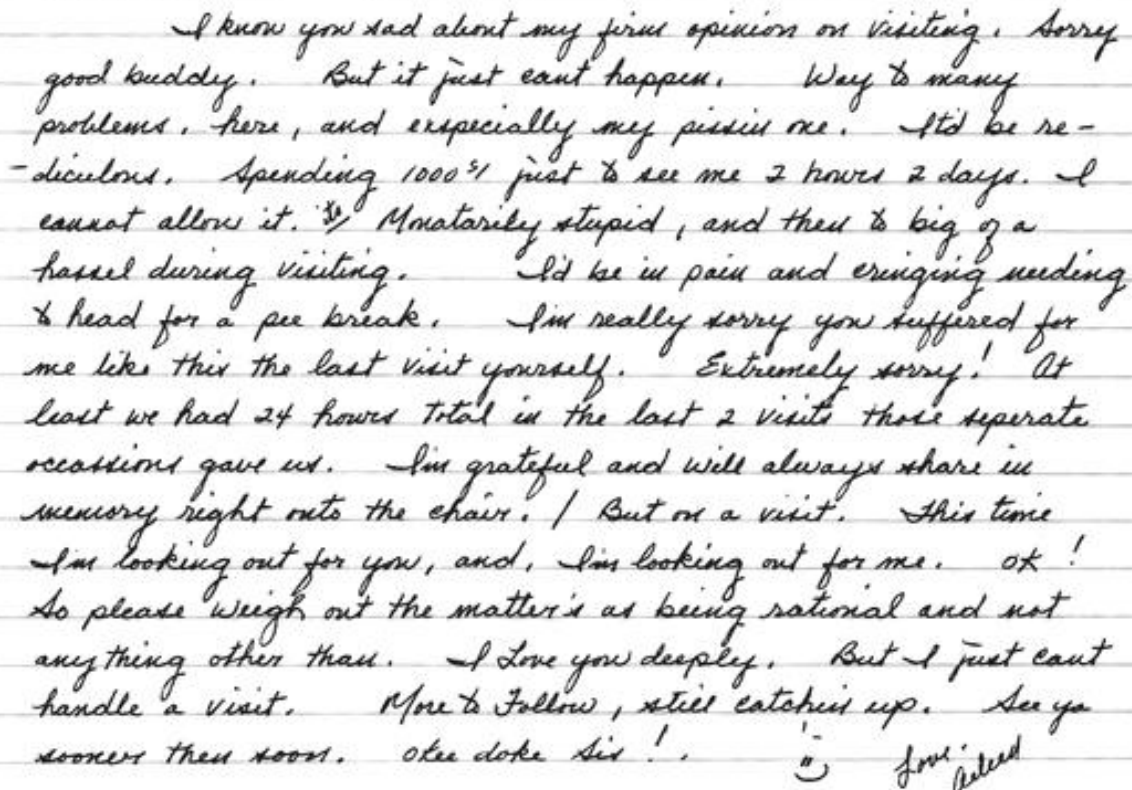 I know you sad about my firm opinion on visiting. Sorry
good buddy. But it just cant happen. Way to many
problems. here, and exspecially my pissin one. It'd be re-
-diculous. Spending 1000$ just to see me 2 hours 2 days. I
cannot allow it. Monatarily stupid, and then to big of a
hassel during visiting. I'd be in pain and cringing needing
to head for a pee break. I'm really sorry you suffered for
me like this the last visit yourself. Extremely sorry! At
least we had 24 hours total in the last 2 visits those seperate
occassions gave us. I'm grateful and will always share in
memory right onto the chair. / But on a visit. This time
I'm looking out for you, and, I'm looking out for me. OK!
So please weigh out the matter's as being rational and not
any thing other than. I Love you deeply. But I just cant
handle a visit. More to Follow, still catchin up. See ya
sooner then soon. Okee doke Sis!.
Love.